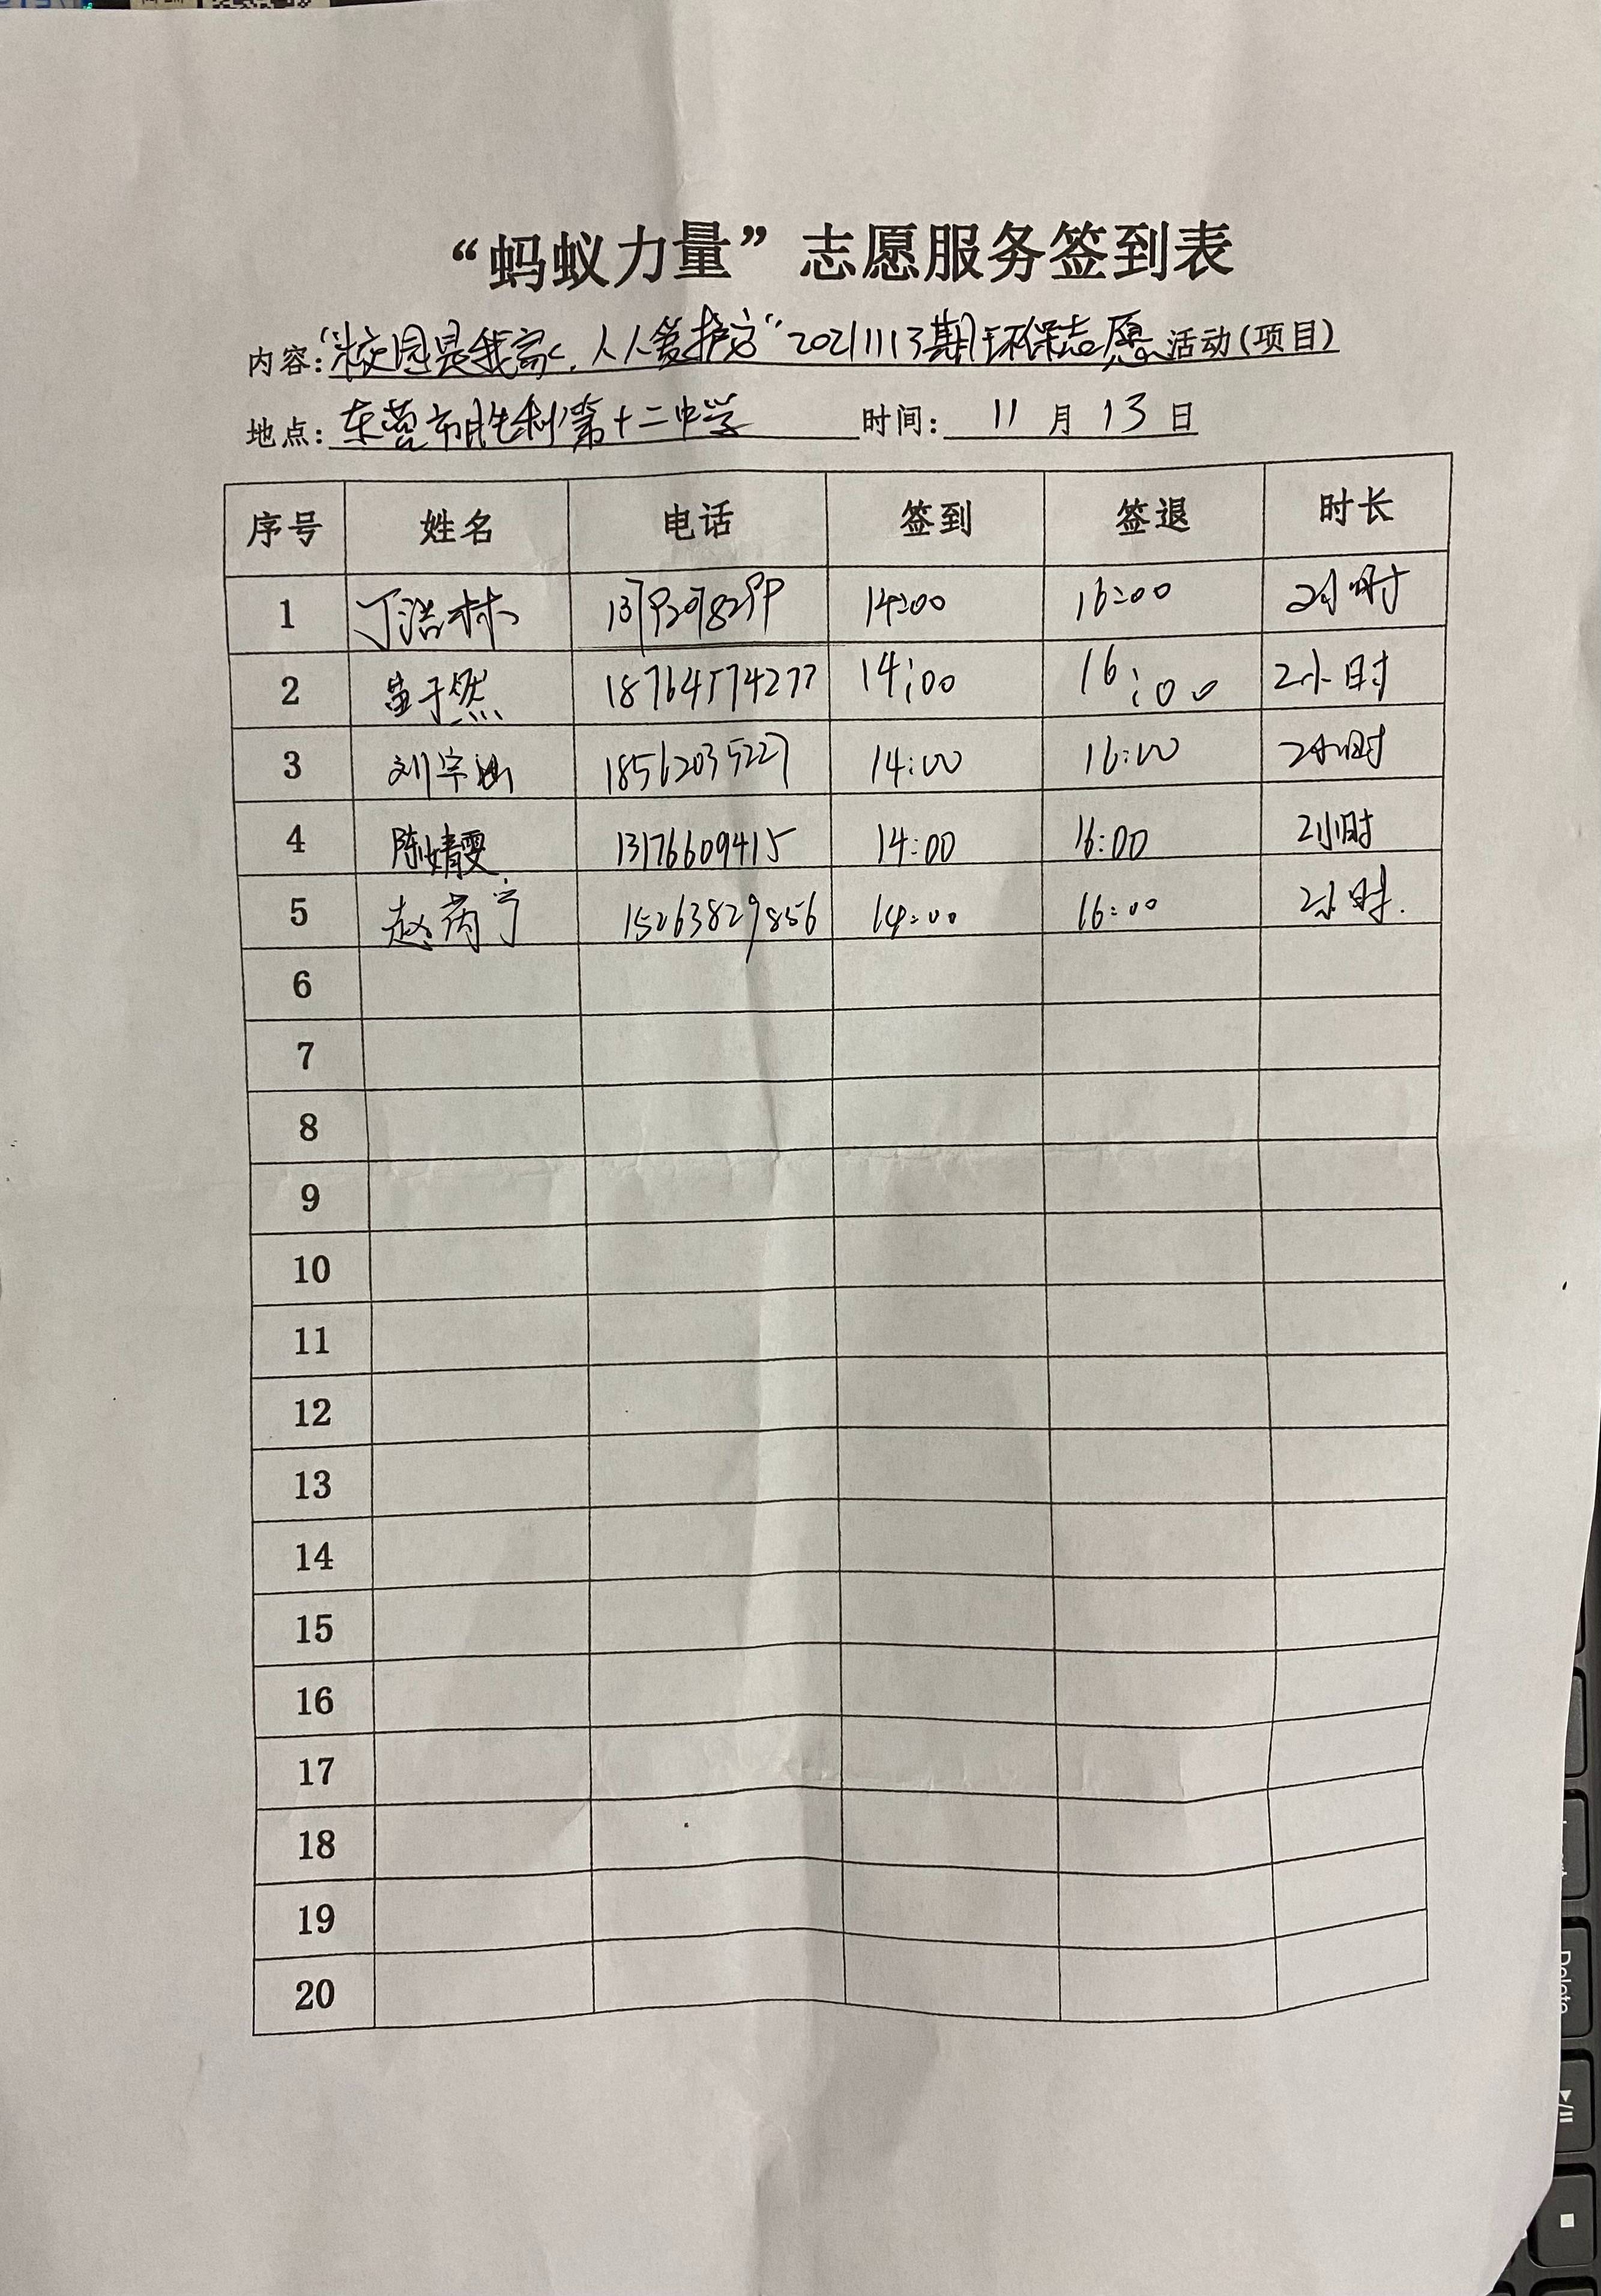 “蚂蚁力量”志愿服务签到表
内容：“校园是我家，人人爱护它”20211113期环保志愿活动(项目)
地点：东营市胜利第十二中学 时间： 11 月 13 日
序号 姓名 电话 签到 签退 时长
1 丁浩林 14:00 16:00 2小时
2 苗于然 18764574277 14:00 16:00 2小时
3 刘宇 18562035227 14:00 16:00 2小时
4 陈婧雯 13176609415 14:00 16:00 2小时
5 赵芮宁 15063829856 14:00 16:00 2小时.
6
7
8
9
10
11
12
13
14
15
16
17
18
19
20
Delete